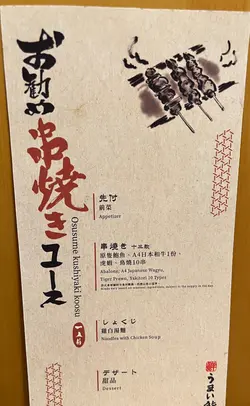 お勧め串焼きコース
Osusume kushiyaki koosu
一人前
先付
前菜
Appetizer
串燒き 十三款
原隻鮑魚、A4日本和牛1份、
虎蝦、鳥燒10串
Abalone, A4 Japanese Wagyu,
Tiger Prawn, Yakitori 10 Types
しょくじ
雞白湯麵
Noodles with Chicken Soup
デザート
甜品
Dessert